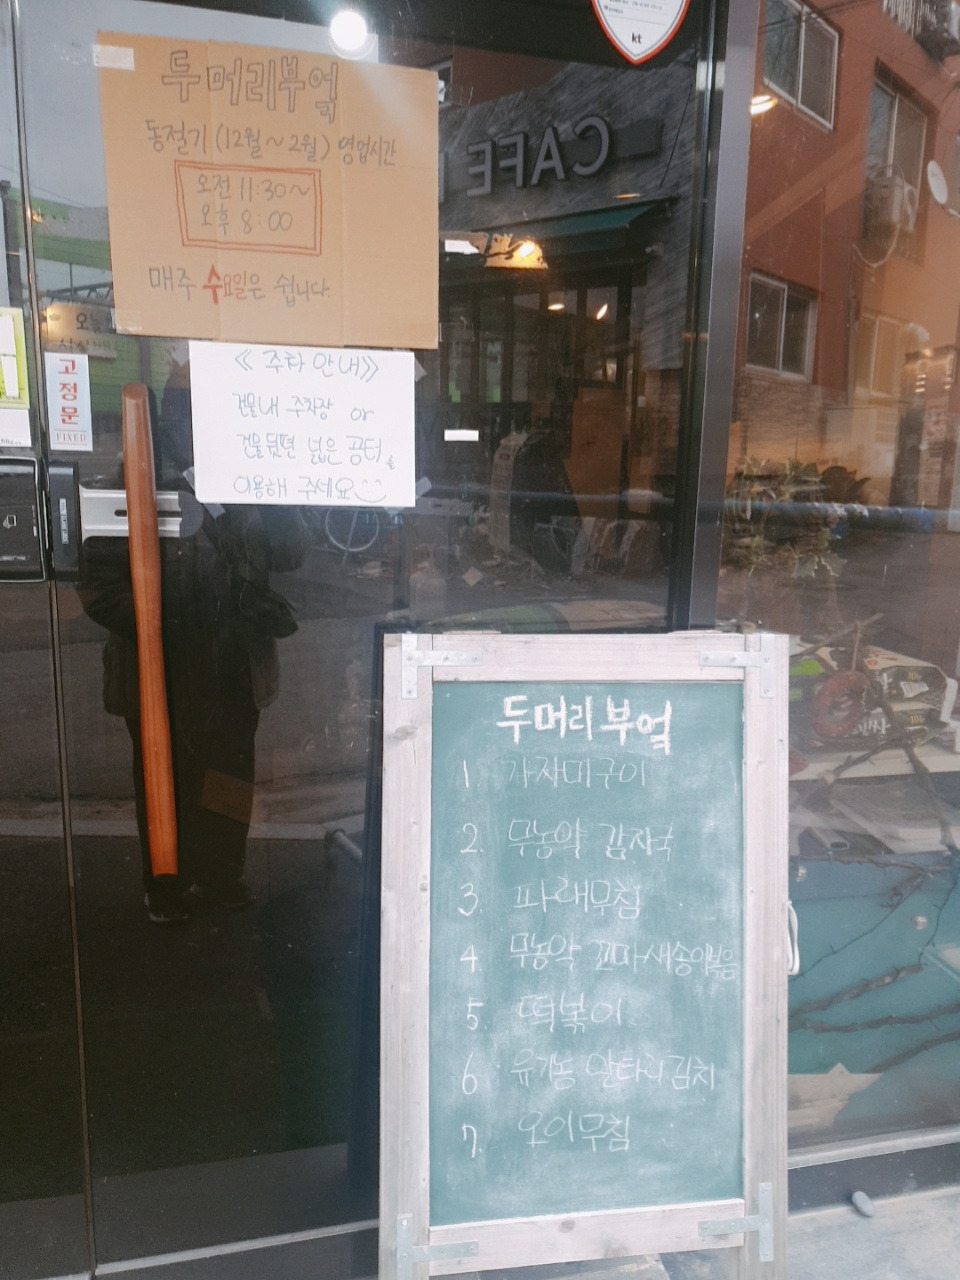 kt
두머리부엌
동절기 (12월~2월) 영업시간
오전 11:30~
오후 8:00
매주 수요일은 쉽니다.
CAFE
오늘
고정문
FIXED
《주차 안내》
건물내 주차장 or
건물뒤편 넓은 공터를
이용해 주세요
두머리부엌
1. 가자미구이
2. 무농약 감자국
3. 파래무침
4. 무농약 꼬마새송이볶음
5. 떡볶이
6. 유기농 알타리김치
7. 오이무침